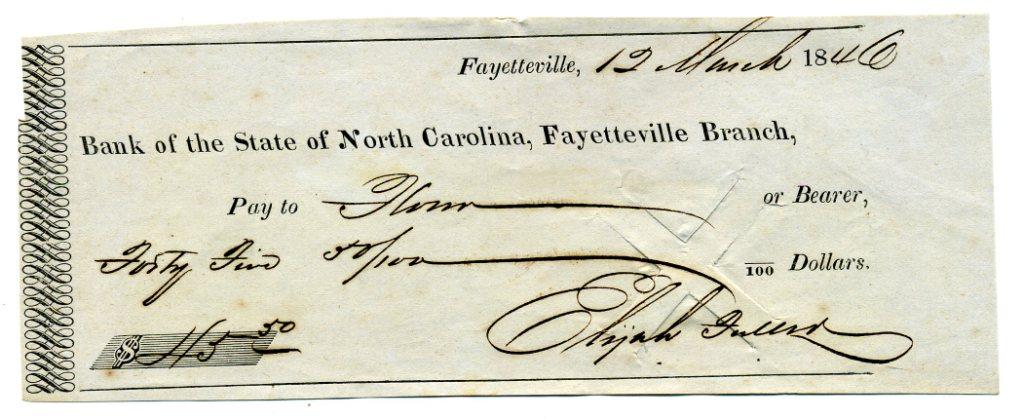 Fayetteville, 12 March 1846
Bank of the State of North Carolina, Fayetteville Branch,
Pay to or Bearer,
Forty Five 50/100 /100 Dollars.
$45 50 Elijah Fuller